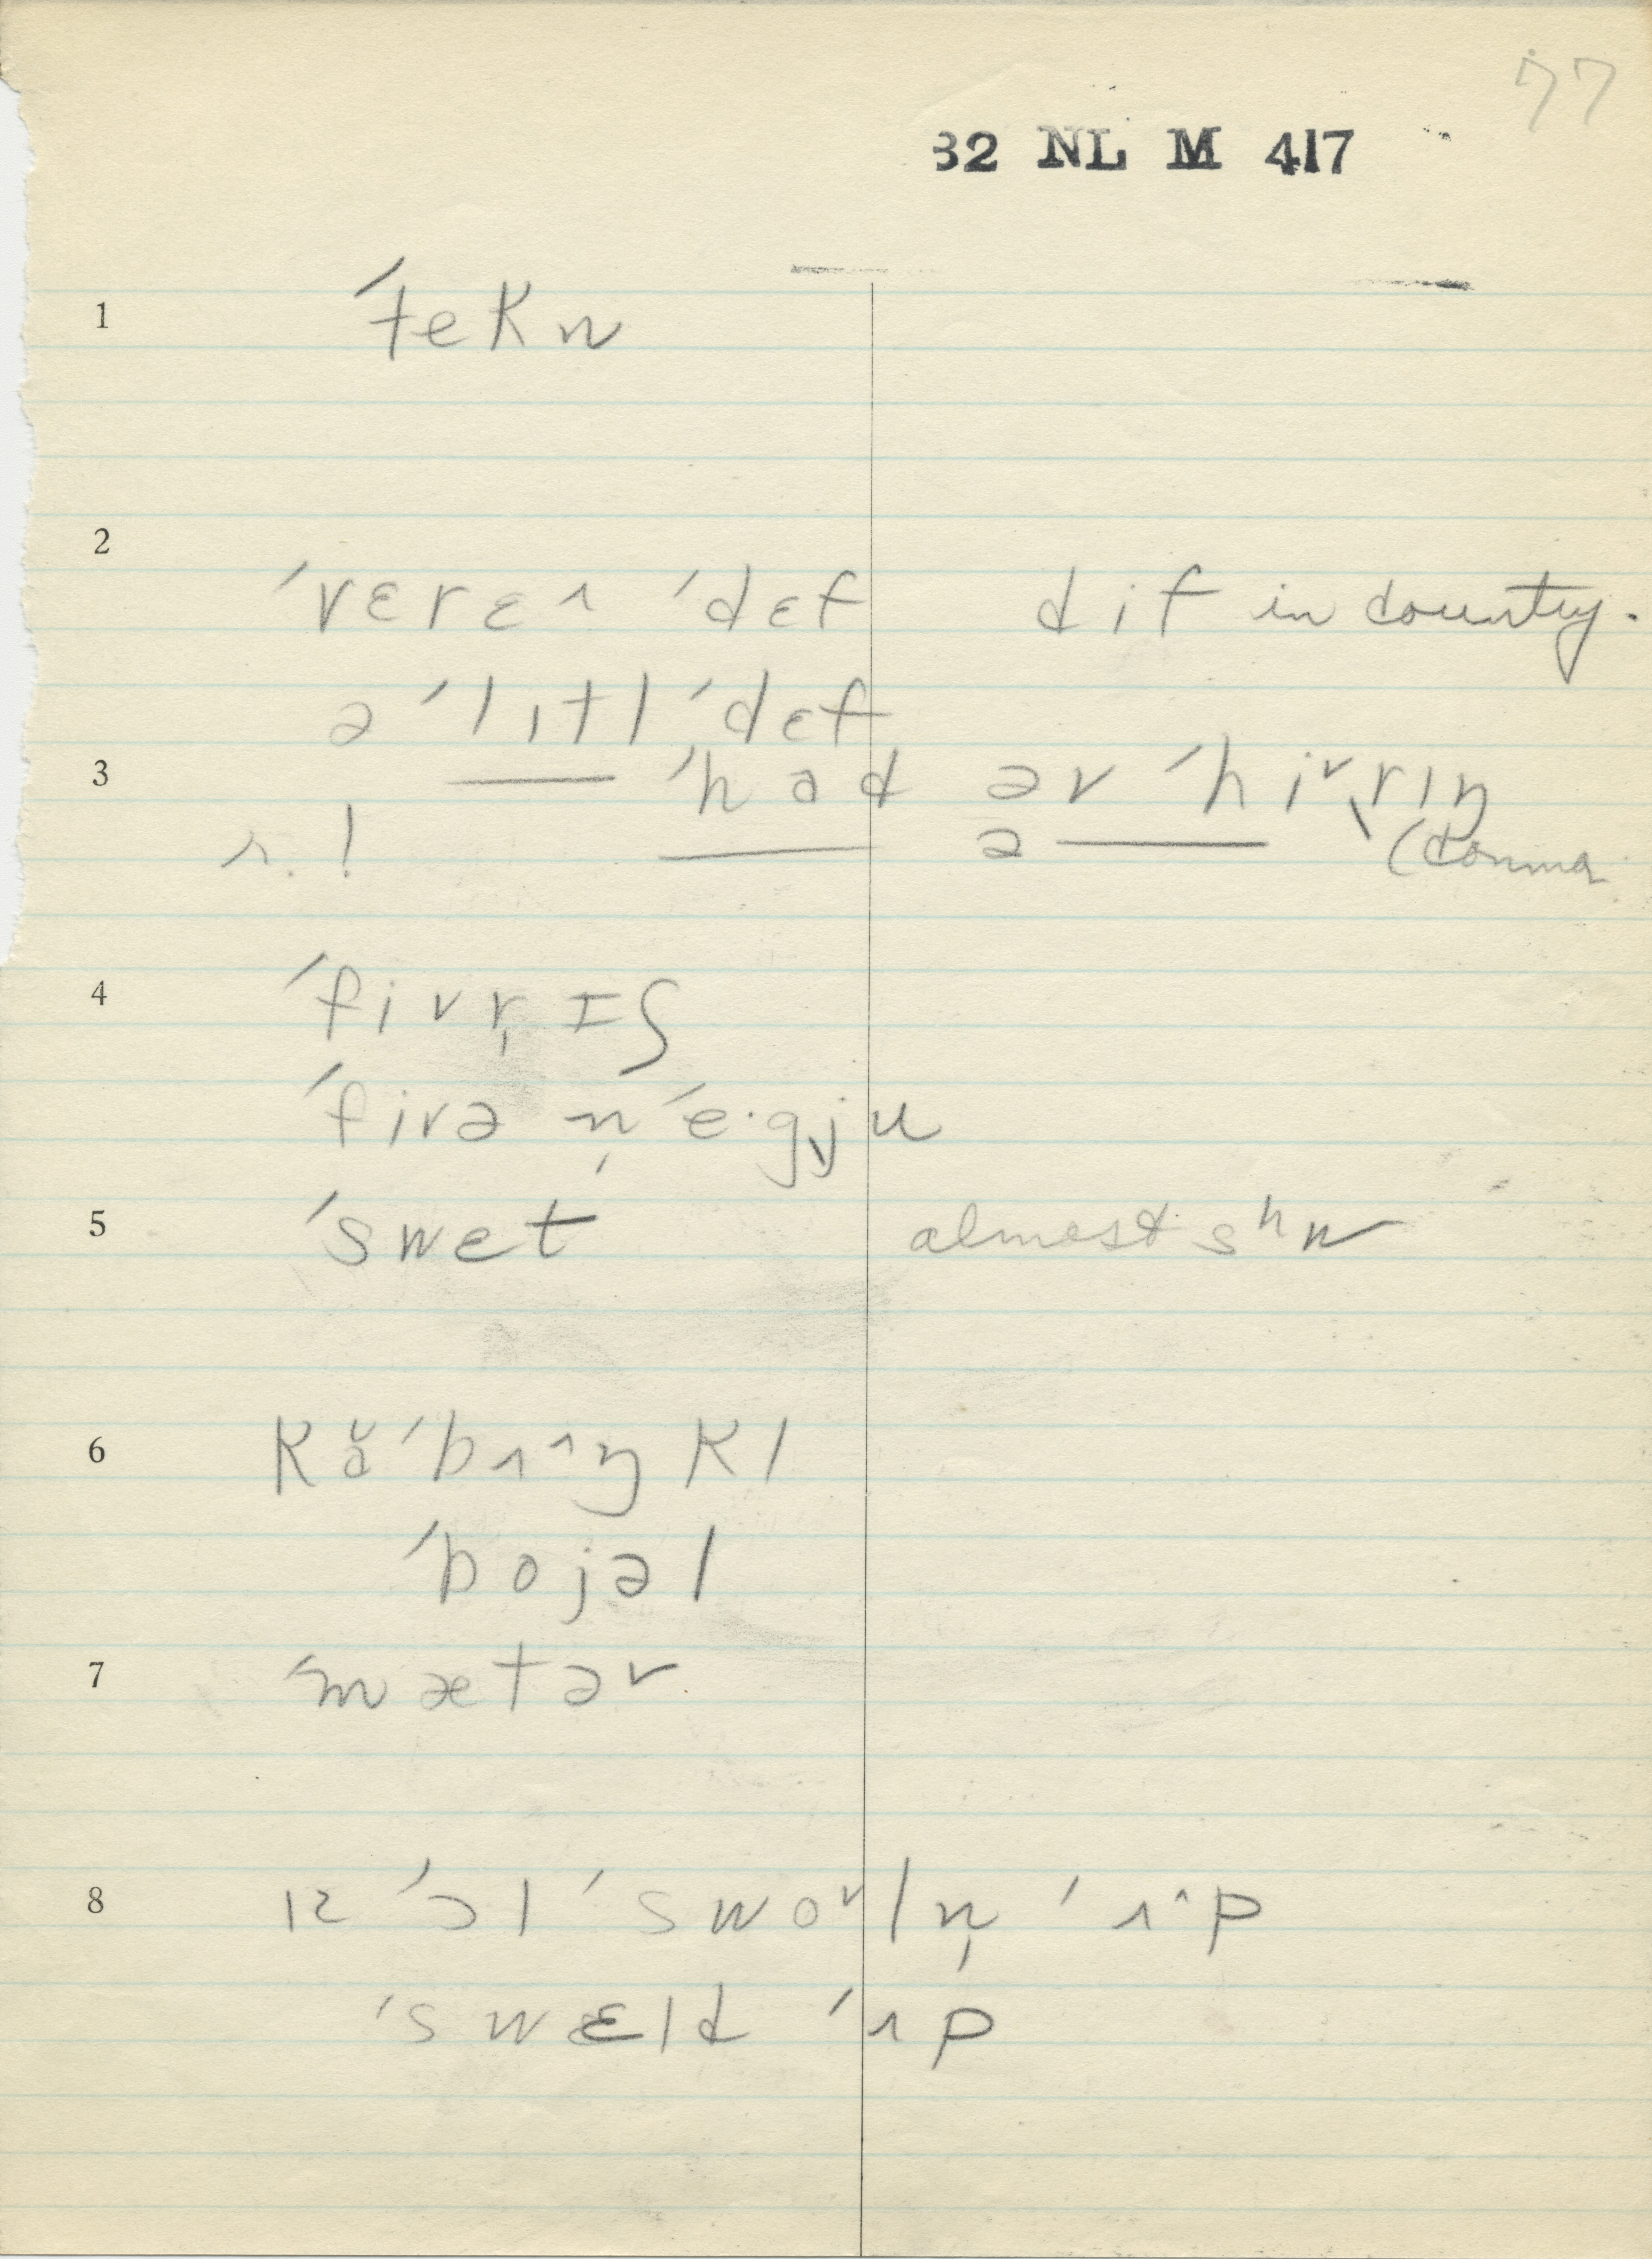 77
32 NL M 417
1 ˈtekn
2
ˈvɛrɛ˄ ˈdɛf dif in country.
ə ˈlɪtl ˈdɛf
3 —— ˈhad əv ˈhi˅rɪŋ
r. ! —— a —— (comma
4 ˈfi˅r̩ɪʃ
ˈfivə n̩ ˈe·gju
5 ˈswet almost sʰw
6 kə̆ ˈbʌ˄ŋkl
ˈbojəl
7 ˈmætər
8 ɪz ˈɔl ˈswo˅ln̩ ˈʌ˄p
ˈswɛld ˈʌp